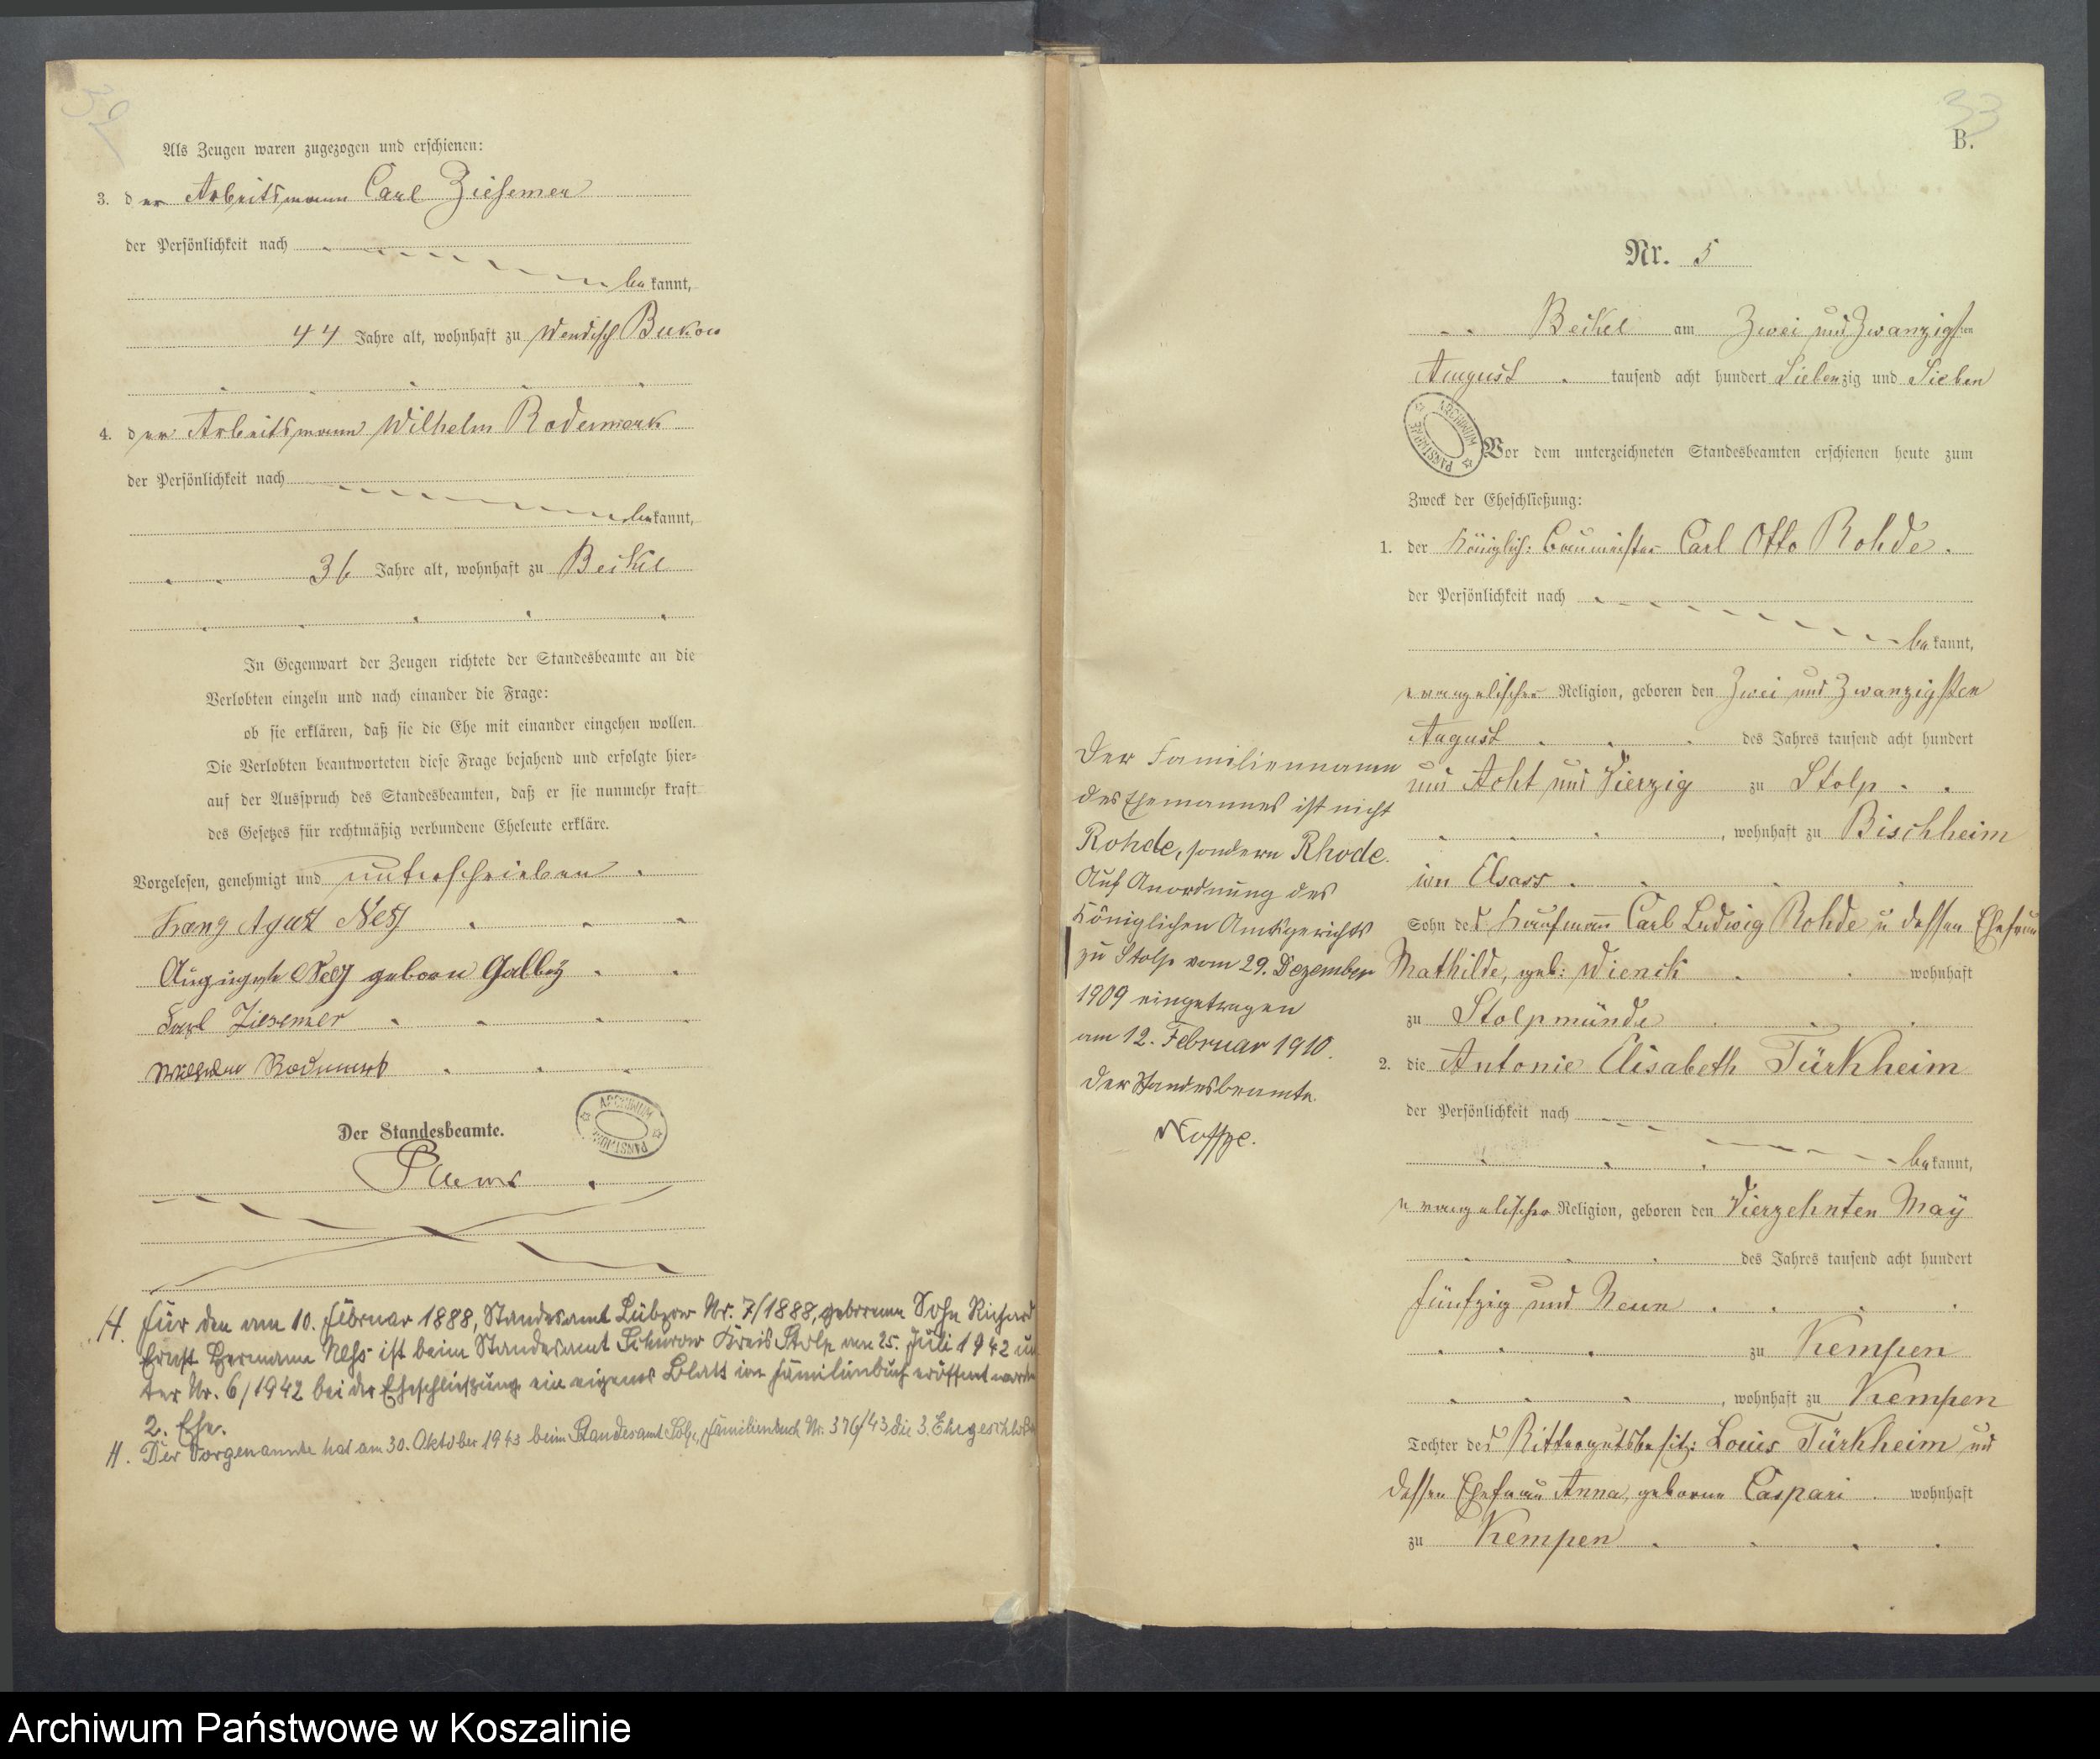 32
Als Zeugen waren zugezogen und erschienen:
3. der Arbeitsmann Carl Ziesemer
der Persönlichkeit nach
bekannt,
44 Jahre alt, wohnhaft zu Wendisch Bukow
4. der Arbeitsmann Wilhelm Rodenwerk
der Persönlichkeit nach
bekannt,
36 Jahre alt, wohnhaft zu Beikel
In Gegenwart der Zeugen richtete der Standesbeamte an die
Verlobten einzeln und nach einander die Frage:
ob sie erklären, daß sie die Ehe mit einander eingehen wollen.
Die Verlobten beantworteten diese Frage bejahend und erfolgte hier-
auf der Ausspruch des Standesbeamten, daß er sie nunmehr kraft
des Gesetzes für rechtmäßig verbundene Eheleute erkläre.
Vorgelesen, genehmigt und unterschrieben
geborn
Ziesemer
Der Standesbeamte.
ARCHIWUM PAŃSTWOWE
H. Für den am 10. Februar 1888, Standesamt Lübzow Nr. 7/1888, geborenen Sohn Richard
Ernst Hermann Ness ist beim Standesamt Schurow Kreis Stolp am 25. Juli 1942 un
ter Nr. 6/1942 bei der Eheschließung ein eigenes Blatt im Familienbuch eröffnet worden
2. Ehe.
H. Der Vorgenannte hat am 30. Oktober 1943 beim Standesamt Stolp, Familienbuch Nr. 376/43 die 3. Ehe geschlossen
33
B.
Nr. 5
Beikel am Zwei und Zwanzigsten
August tausend acht hundert Siebenzig und Sieben
ARCHIWUM PAŃSTWOWE
Vor dem unterzeichneten Standesbeamten erschienen heute zum
Zweck der Eheschließung:
1. der Königlich: Baumeister Carl Otto Rohde.
der Persönlichkeit nach
bekannt,
evangelischer Religion, geboren den Zwei und Zwanzigsten
August des Jahres tausend acht hundert
und Acht und Vierzig zu Stolp
, wohnhaft zu Bischheim
im Elsass
Sohn des Kaufmann Carl Ludwig Rohde u dessen Ehefrau
Mathilde, geb: Wienck wohnhaft
zu Stolpmünde
2. die Antonie Elisabeth Türkheim
der Persönlichkeit nach
bekannt,
evangelischer Religion, geboren den Vierzehnten May
des Jahres tausend acht hundert
fünfzig und Neun
zu Kempen
, wohnhaft zu Kempen
Tochter des Rittergutsbesitz: Louis Türkheim und
dessen Ehefrau Anna, geborene Caspari wohnhaft
zu Kempen
Der Familienname
des Ehemannes ist nicht
Rohde, sondern Rhode.
Auf Anordnung des
Königlichen Amtsgerichts
zu Stolp vom 29. Dezember
1909 eingetragen
am 12. Februar 1910.
Der Standesbeamte.
Archiwum Państwowe w Koszalinie